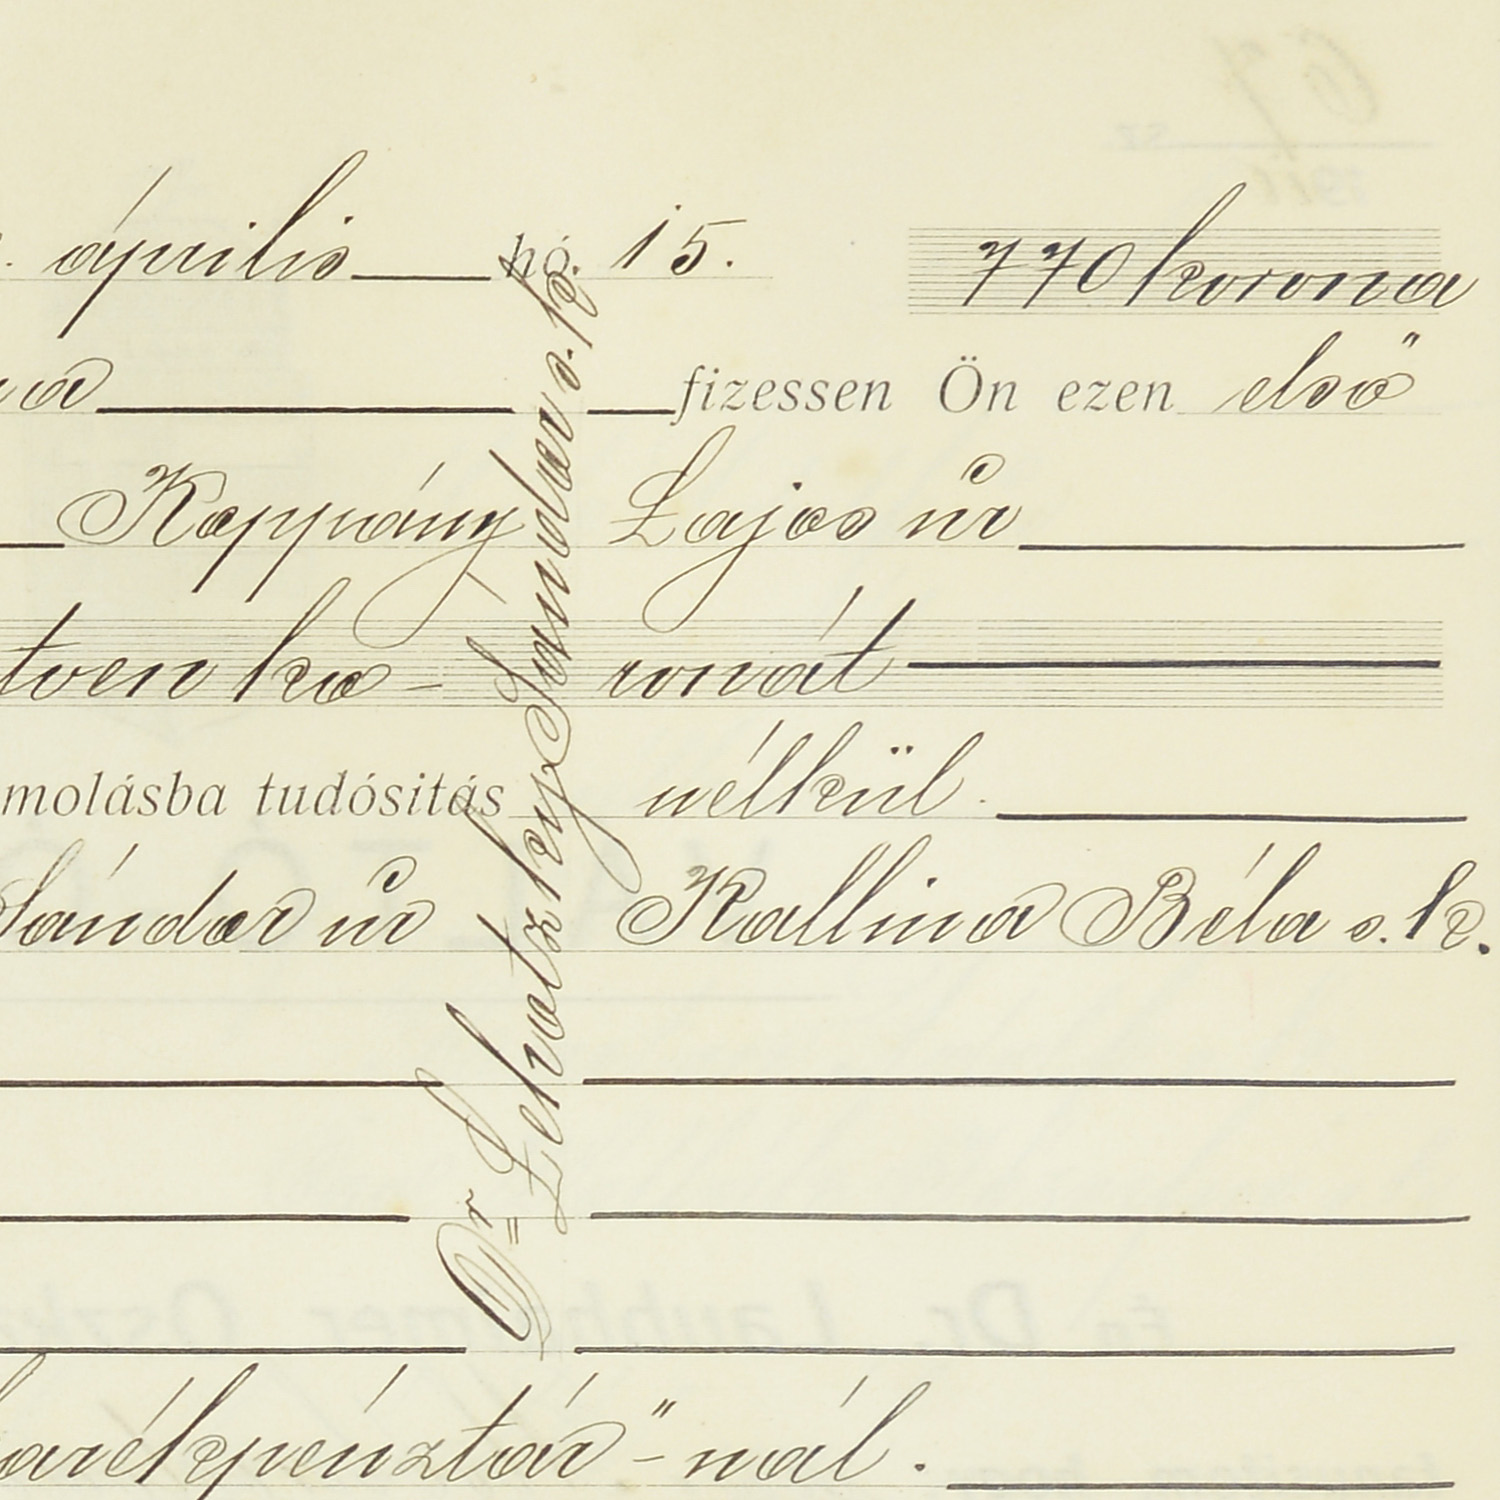 április hó. 15. 770 korona
fizessen Ön ezen első
Koppány Lajos úr
tven ko- ronát
molásba tudósitás nélkül.
Sándor úr Kallina Béla s. k.
arékpénztár"-nál.
Dr Lehotzky Sándor s. k.